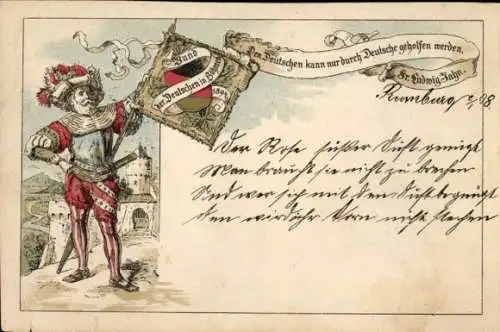 Bund
der Deutschen in Böhmen
1894
Den Deutschen kann nur durch Deutsche geholfen werden.
Fr. Ludwig Jahn.
Rumburg 98.
Der Rose süßer Duft genügt
Man braucht sie nicht zu brechen
Und wer sich mit dem Duft begnügt
den wird ihr Dorn nicht stechen